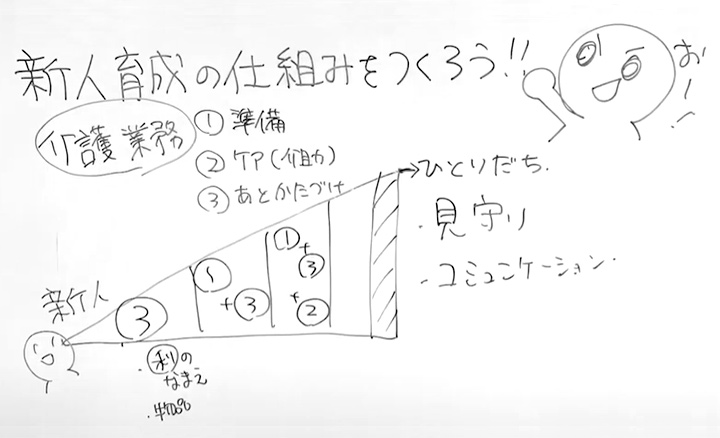 新人育成の仕組みをつくろう!!
おー!
介護業務
① 準備
② ケア(介助)
③ あとかたづけ
→ひとりだち.
・見守り
・コミュニケーション.
新人
③
①+③
①+③+②
・㋷のなまえ
・物品